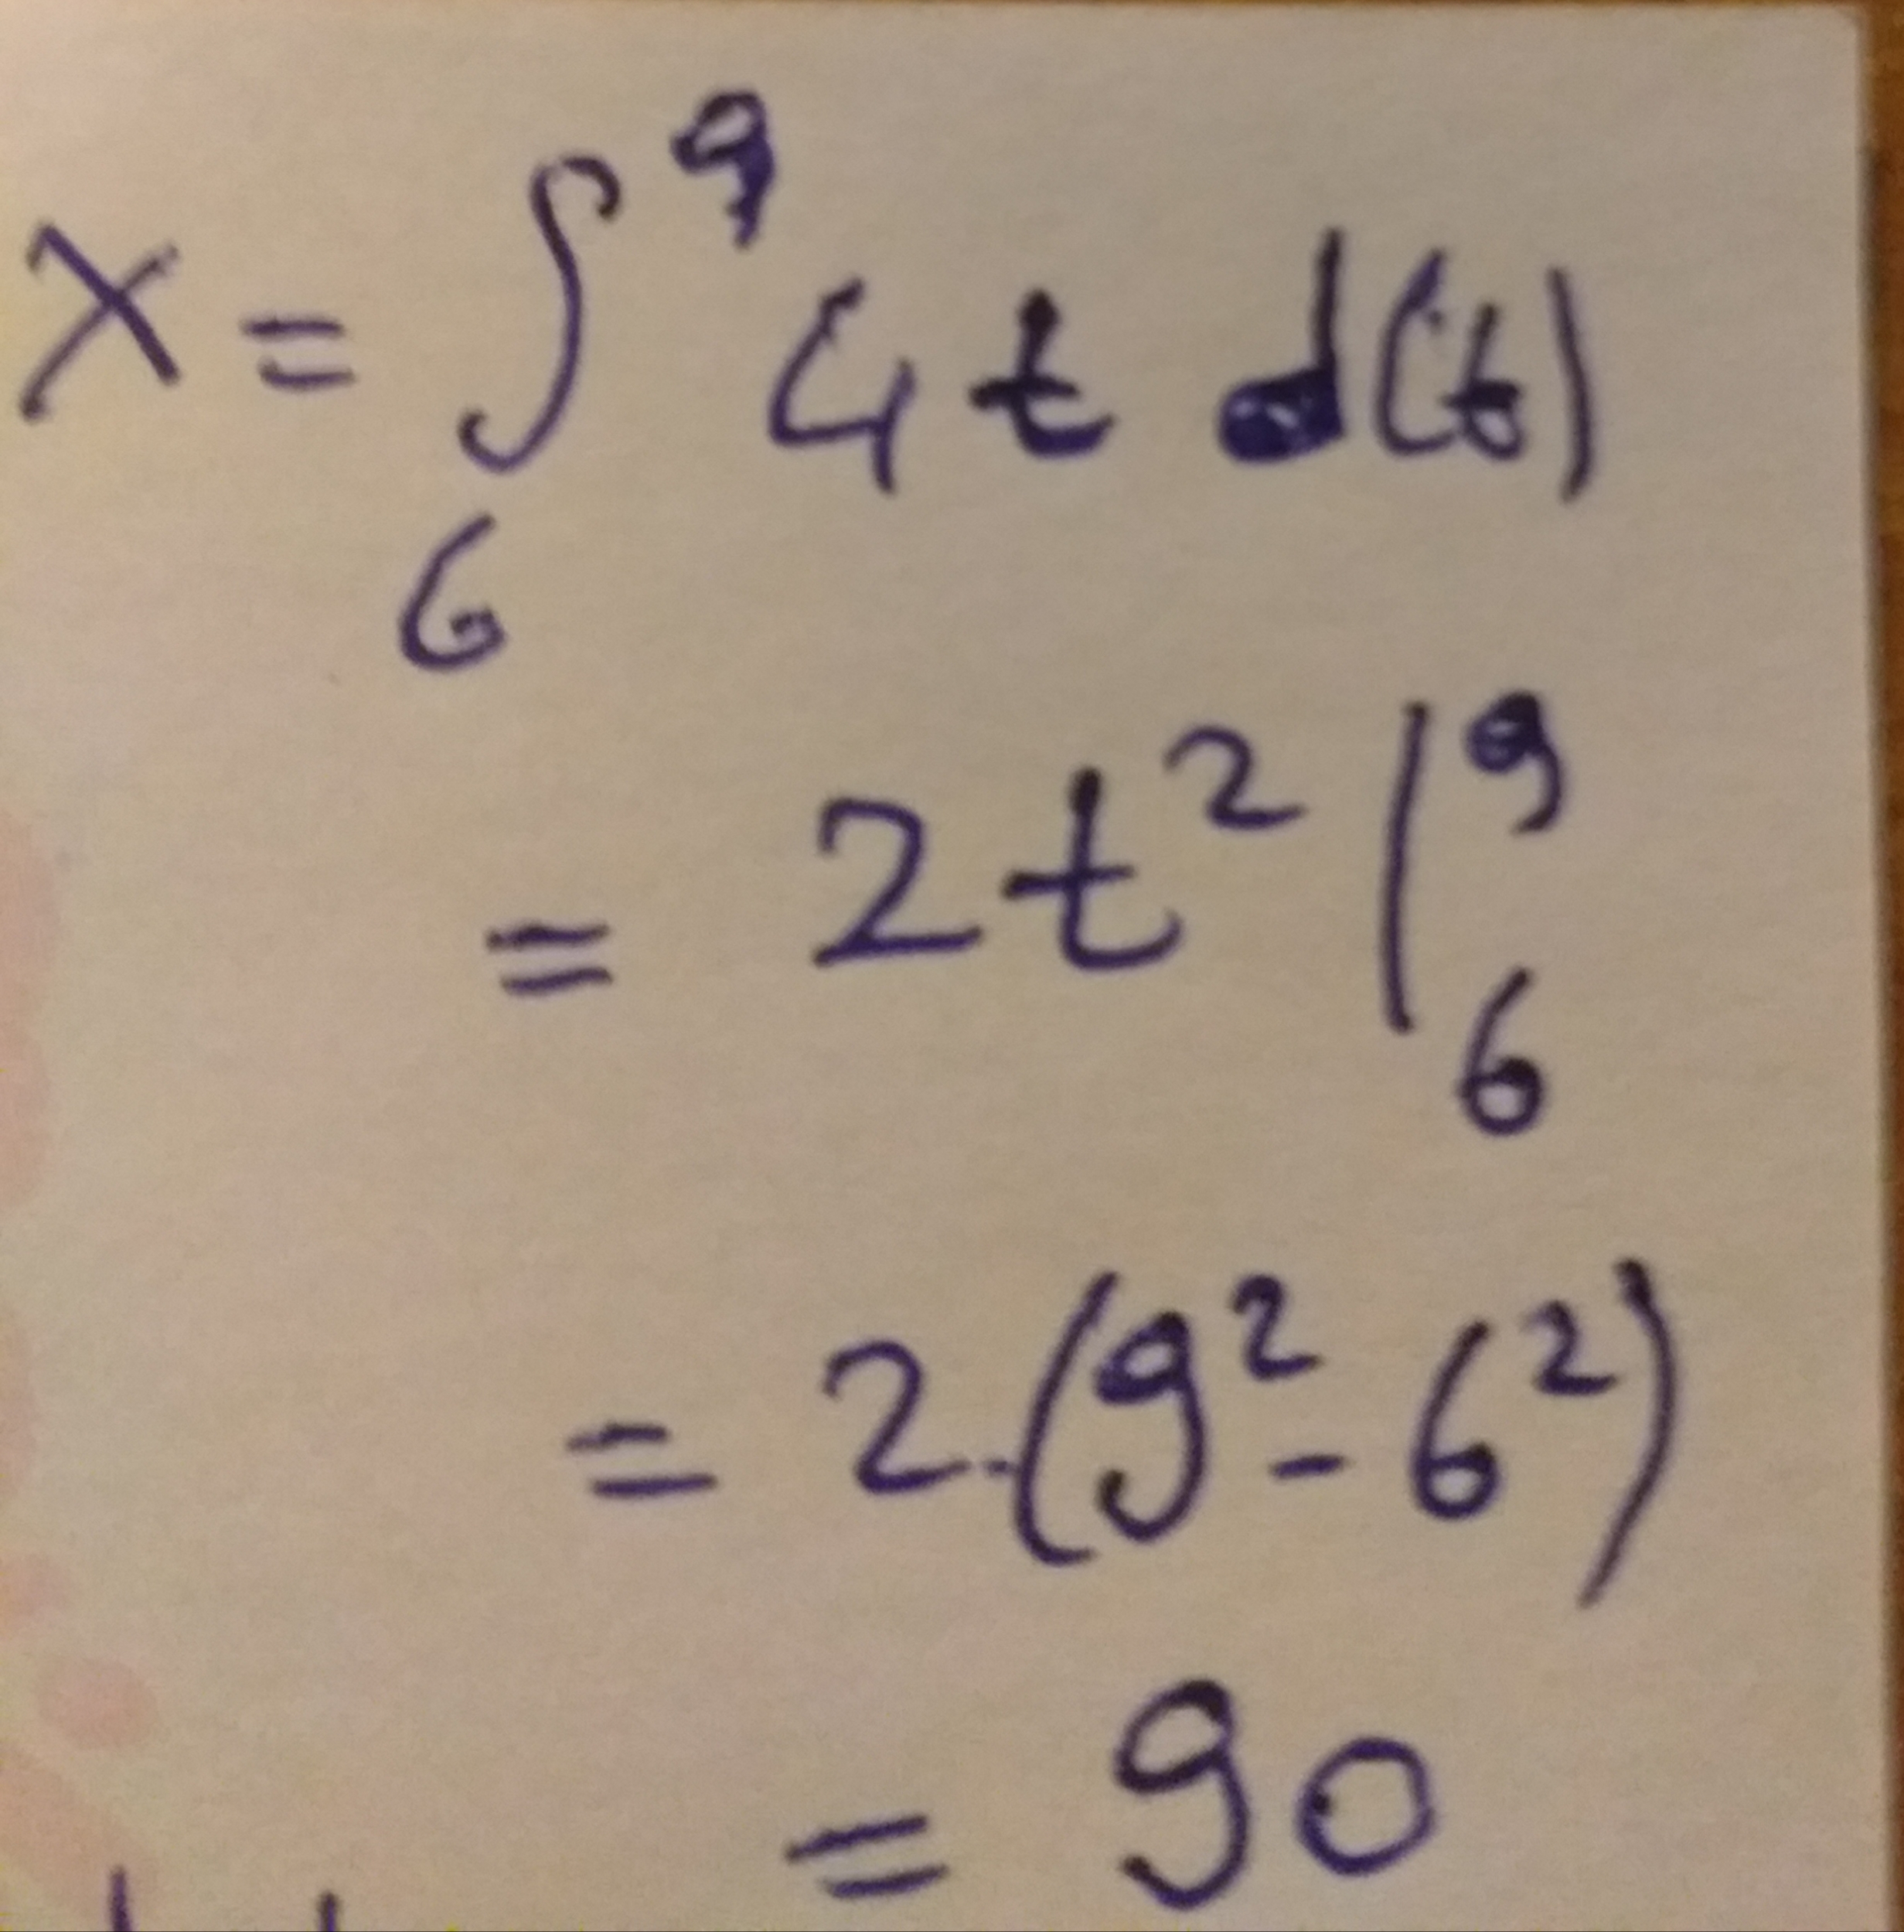 X = ∫₆⁹ 4t d(t)
= 2t² |₆⁹
= 2·(9² - 6²)
= 90